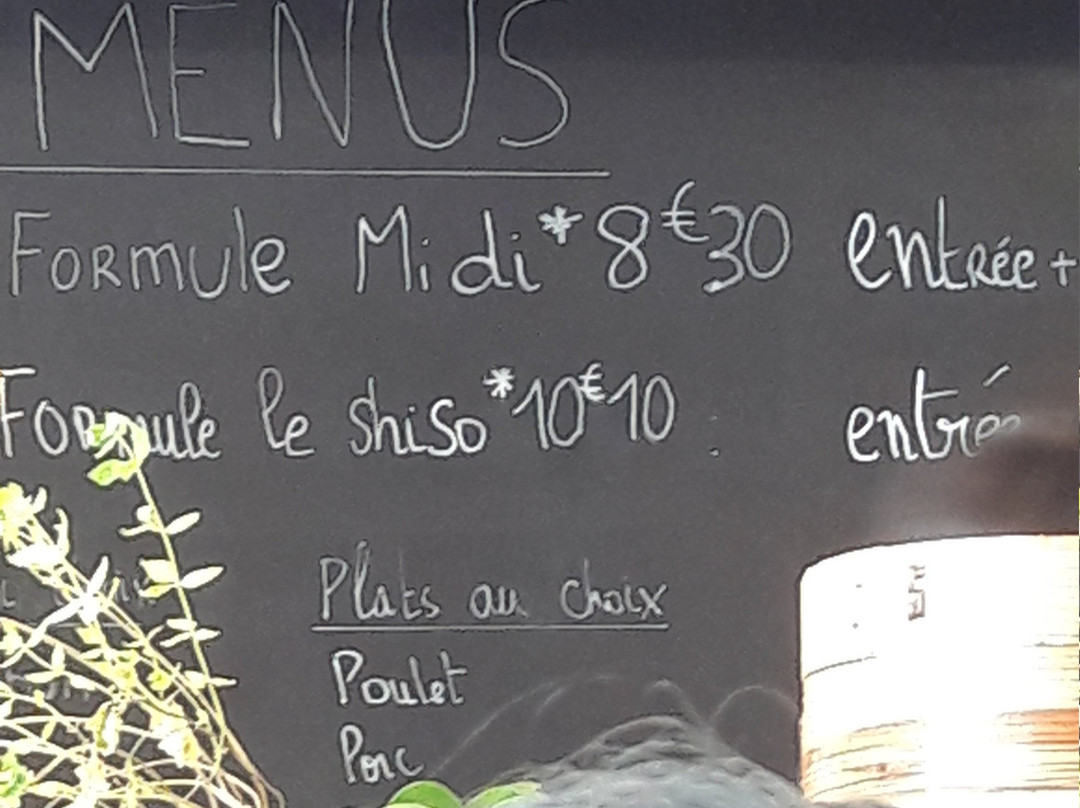 MENUS
Formule Midi *8€30 entrée +
Formule le shiso *10€10 : entrée
Plats au choix
Poulet
Porc